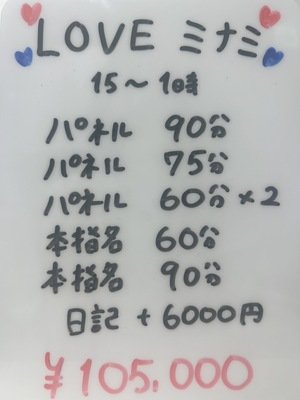 LOVE ミナミ
15〜1時
パネル 90分
パネル 75分
パネル 60分×2
本指名 60分
本指名 90分
日記 + 6000円
¥105.000